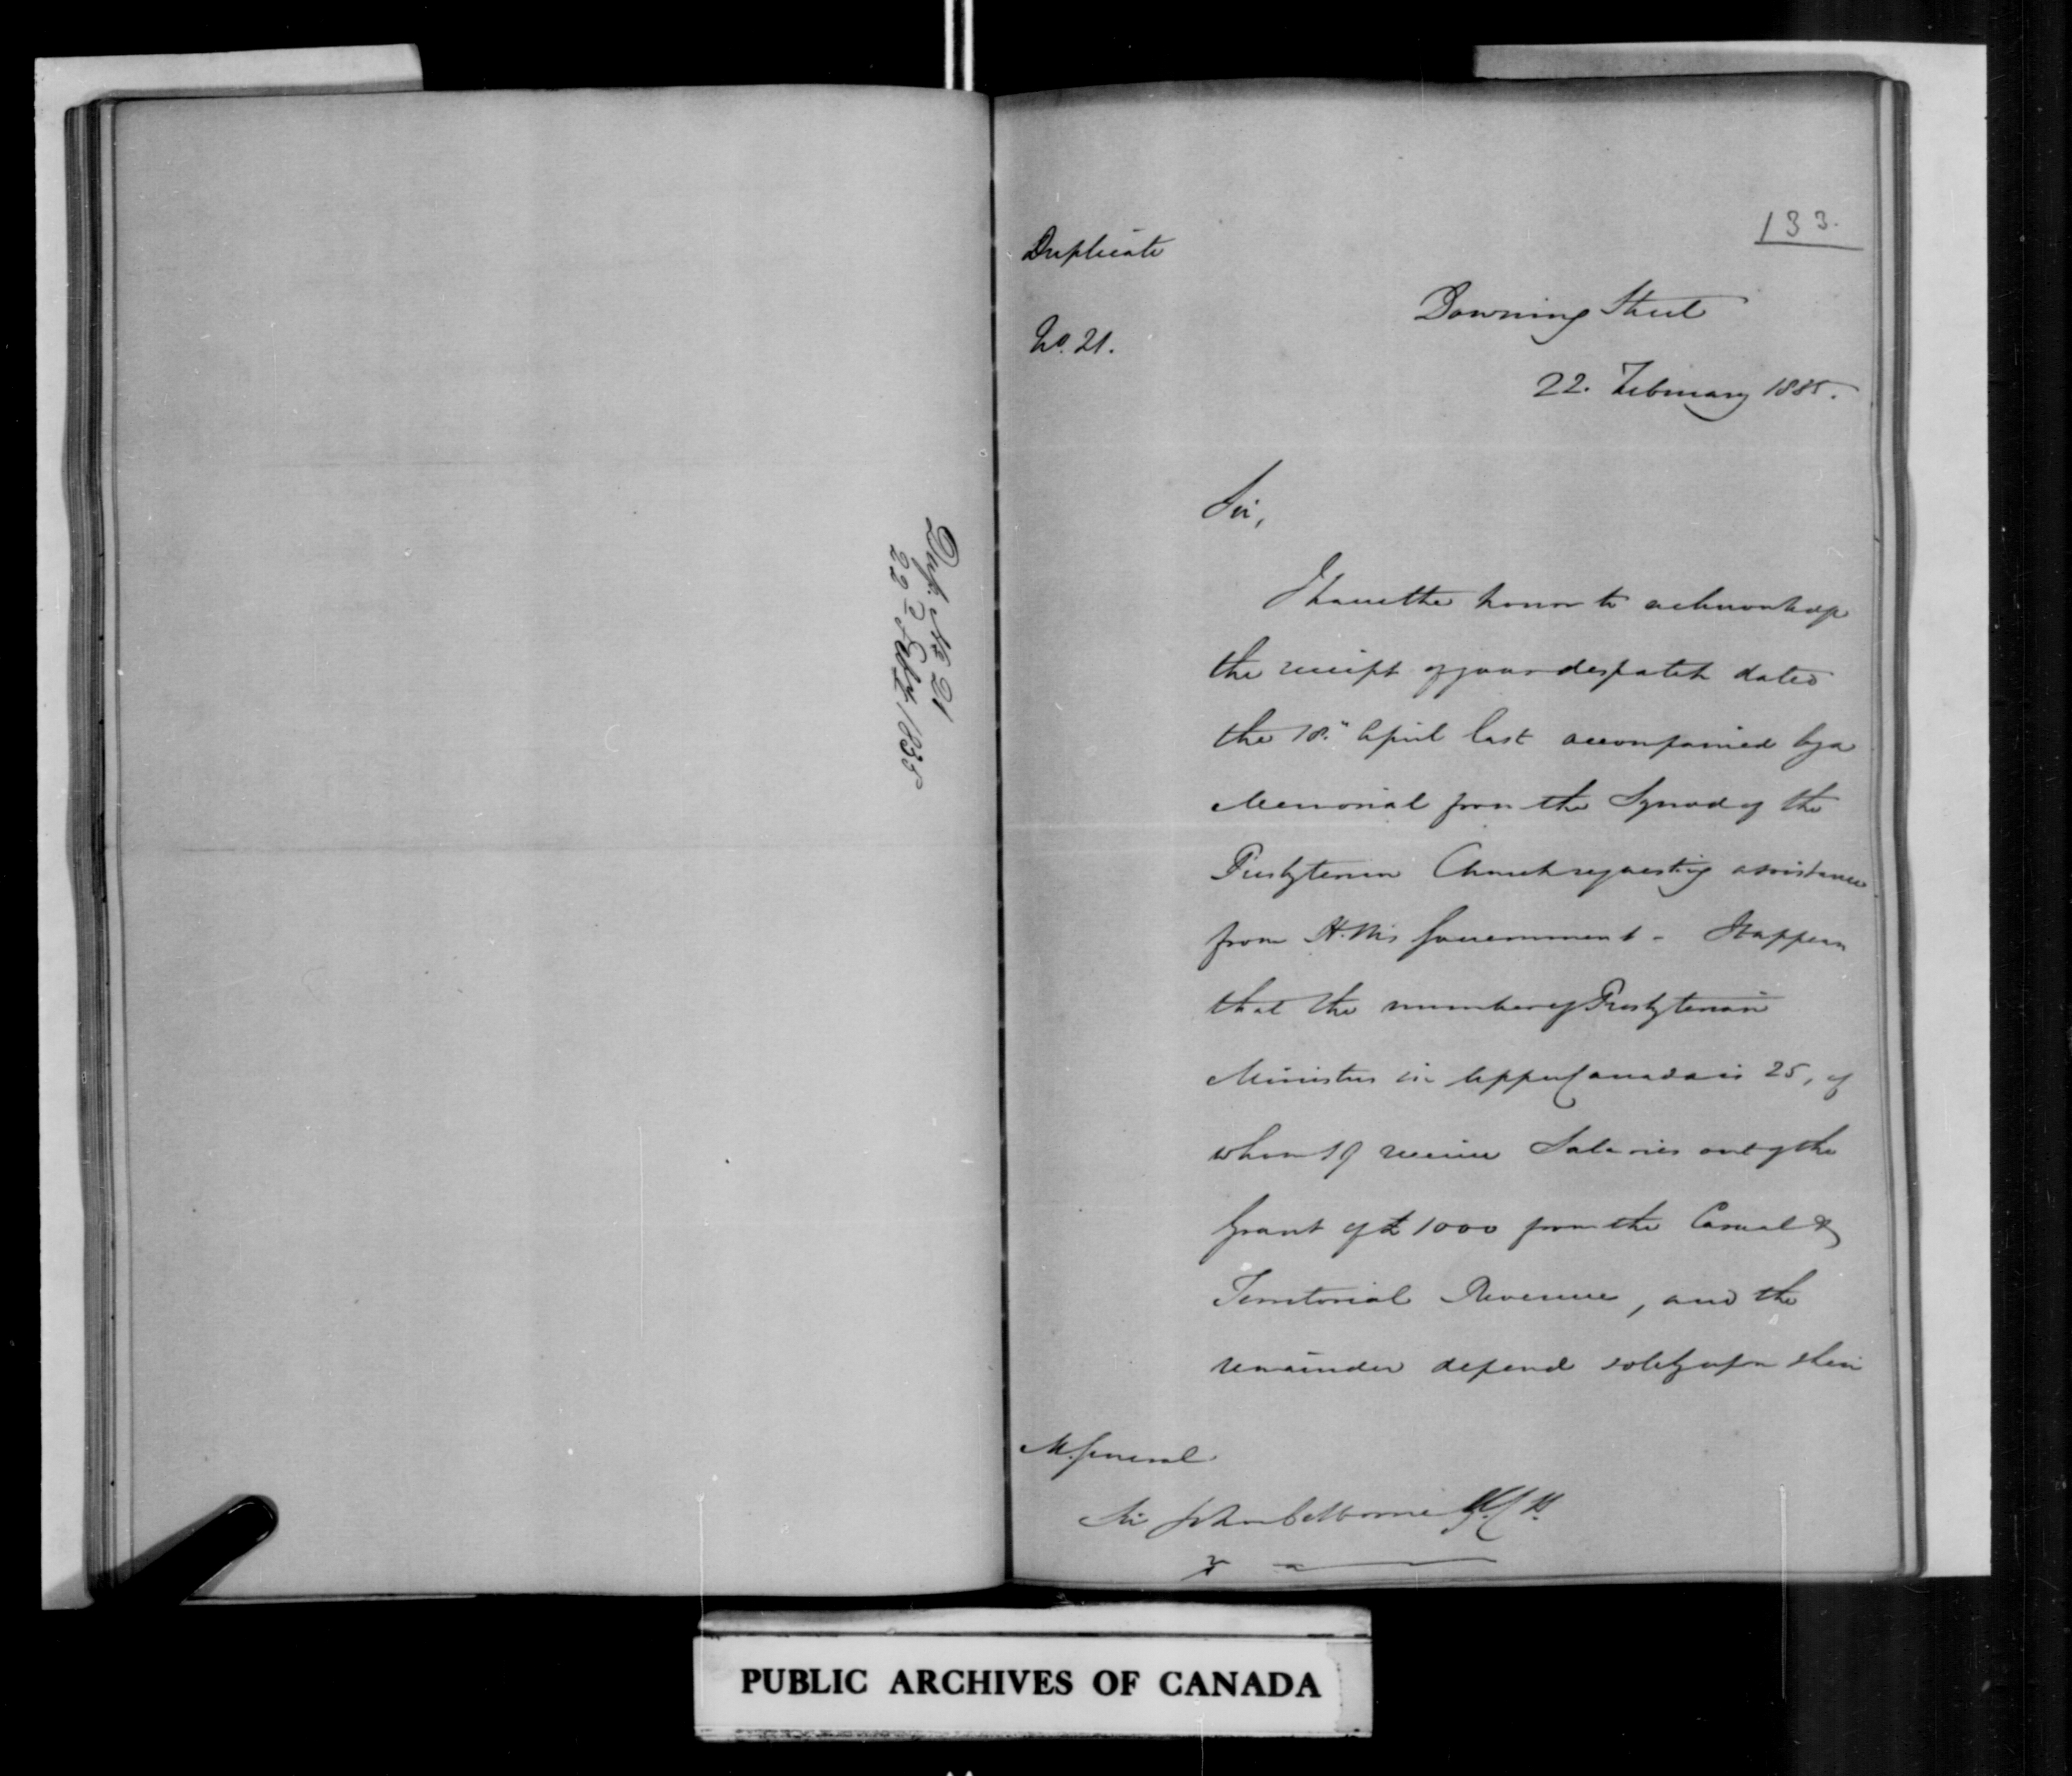 Dup. No 21
22d Feby 1835
133.
Duplicate
No. 21.
Downing Street
22. February 1835.
Sir,
I have the honor to acknowledge
the receipt of your despatch dated
the 18." April last accompanied by a
Memorial from the Synod of the
Presbyterian Church requesting assistance
from H. M's Government - It appears
that the number of Presbyterian
Ministers in Upper Canada is 25, of
whom 19 receive Salaries out of the
Grant of £1000 from the Casual &
Territorial Revenue, and the
remainder depend solely upon their
M. General
Sir John Colborne K.C.B.
PUBLIC ARCHIVES OF CANADA